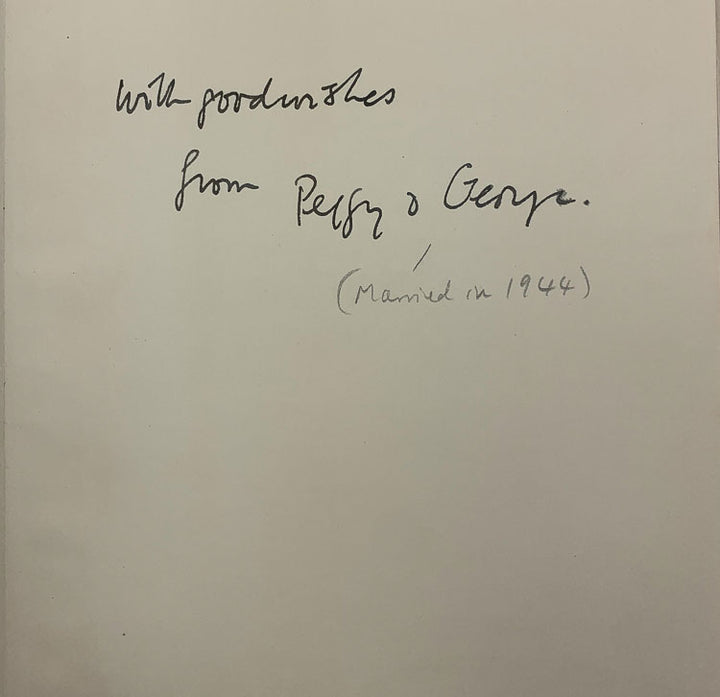 With good wishes
from Peggy & George.
(Married in 1944)